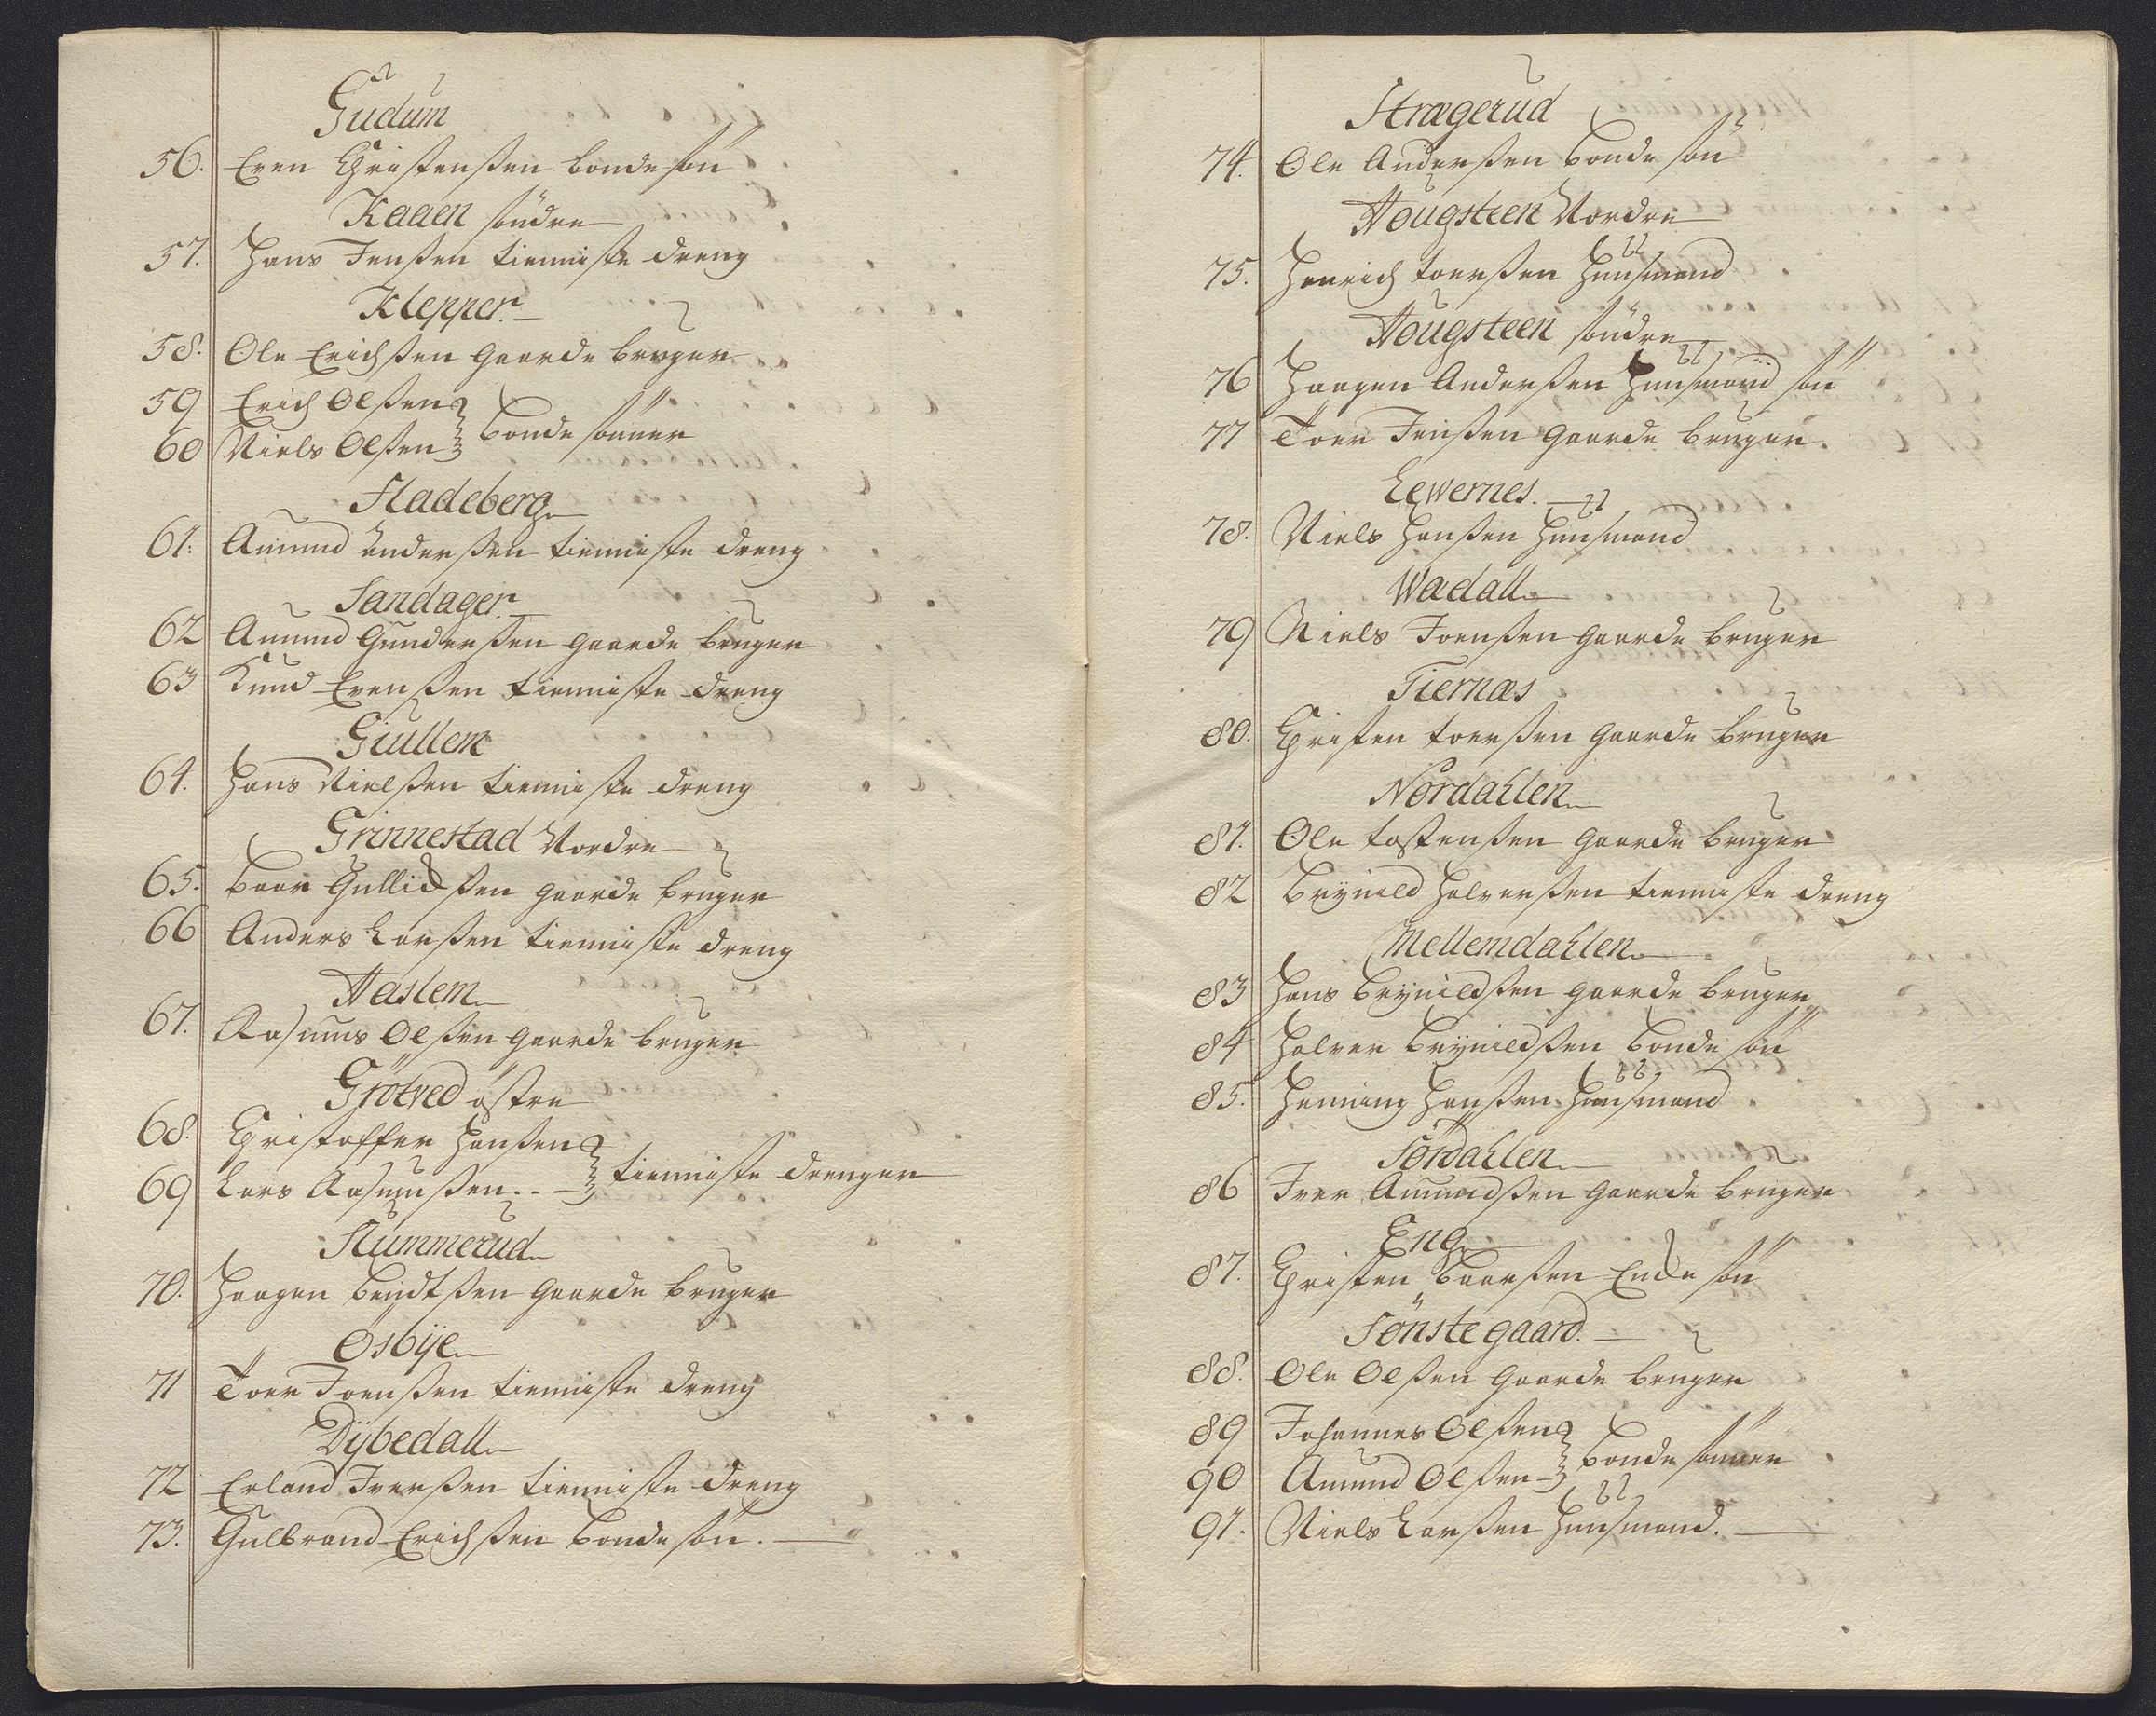 Gudum
56. Even Christensßen bondesøn
Kaaen søndre
57. Hans Jenßen tienniste dreng
Klepper
58. Ole Erichßen gaarde bruger
59 Erich Olßen
60 Niels Olßen } bonde sønner
Sladeberg
61. Amund Anderßen tienniste dreng
Sandager
62 Amund Gunderßen gaarde bruger
63 Knud Evenßen tienniste dreng
Giullem
64. Hans Nielßen tienniste dreng
Grinnestad Nordre
65. Baar Gullichßen gaarde bruger
66 Anders Larßen tienniste dreng
Haslem
67. Rasmus Olßen gaarde bruger
Grötved østre
68. Christoffer Hanßen
69 Lars Rasmusßen } tienniste drenger
Slummerud
70. Haagen Bendtßen gaarde bruger
Osbÿe
71 Toer Joenßen tienniste dreng
Dÿbedall
72 Erland Iverßen tienniste dreng
73. Gulbrand Erichßen bonde søn.
Strægerud
74. Ole Anderßen bonde søn
Hougsteen Nordre
75. Henrich toerßen Huusmand
Hougsteen søndre
76 Haagen Anderßen Huusmand søn
77 Toer Jenßen gaarde bruger.
Lewernes.
78. Niels Hanßen Huusmand
Wadall
79 Niels Joenßen gaarde bruger
Tiernæs
80. Christen toerßen gaarde bruger
Nordahlen
81. Ole tostenßen gaarde bruger
82 Brÿnild Halverßen tienniste dreng
Mellemdahlen
83 Hans Brÿnildßen gaarde bruger
84 Halver Brÿnildßen bonde søn
85. Henning Hanßen Huusmand
Sördahlen
86 Iver Amundßen gaarde bruger
Eng
87. Christen Baarßen Enke søn
Sönstegaard.
88. Ole Olßen gaarde bruger
89 Johannes Olßen
90 Amund Olßen } bonde sønner
91. Niels Larßen Huusmand.